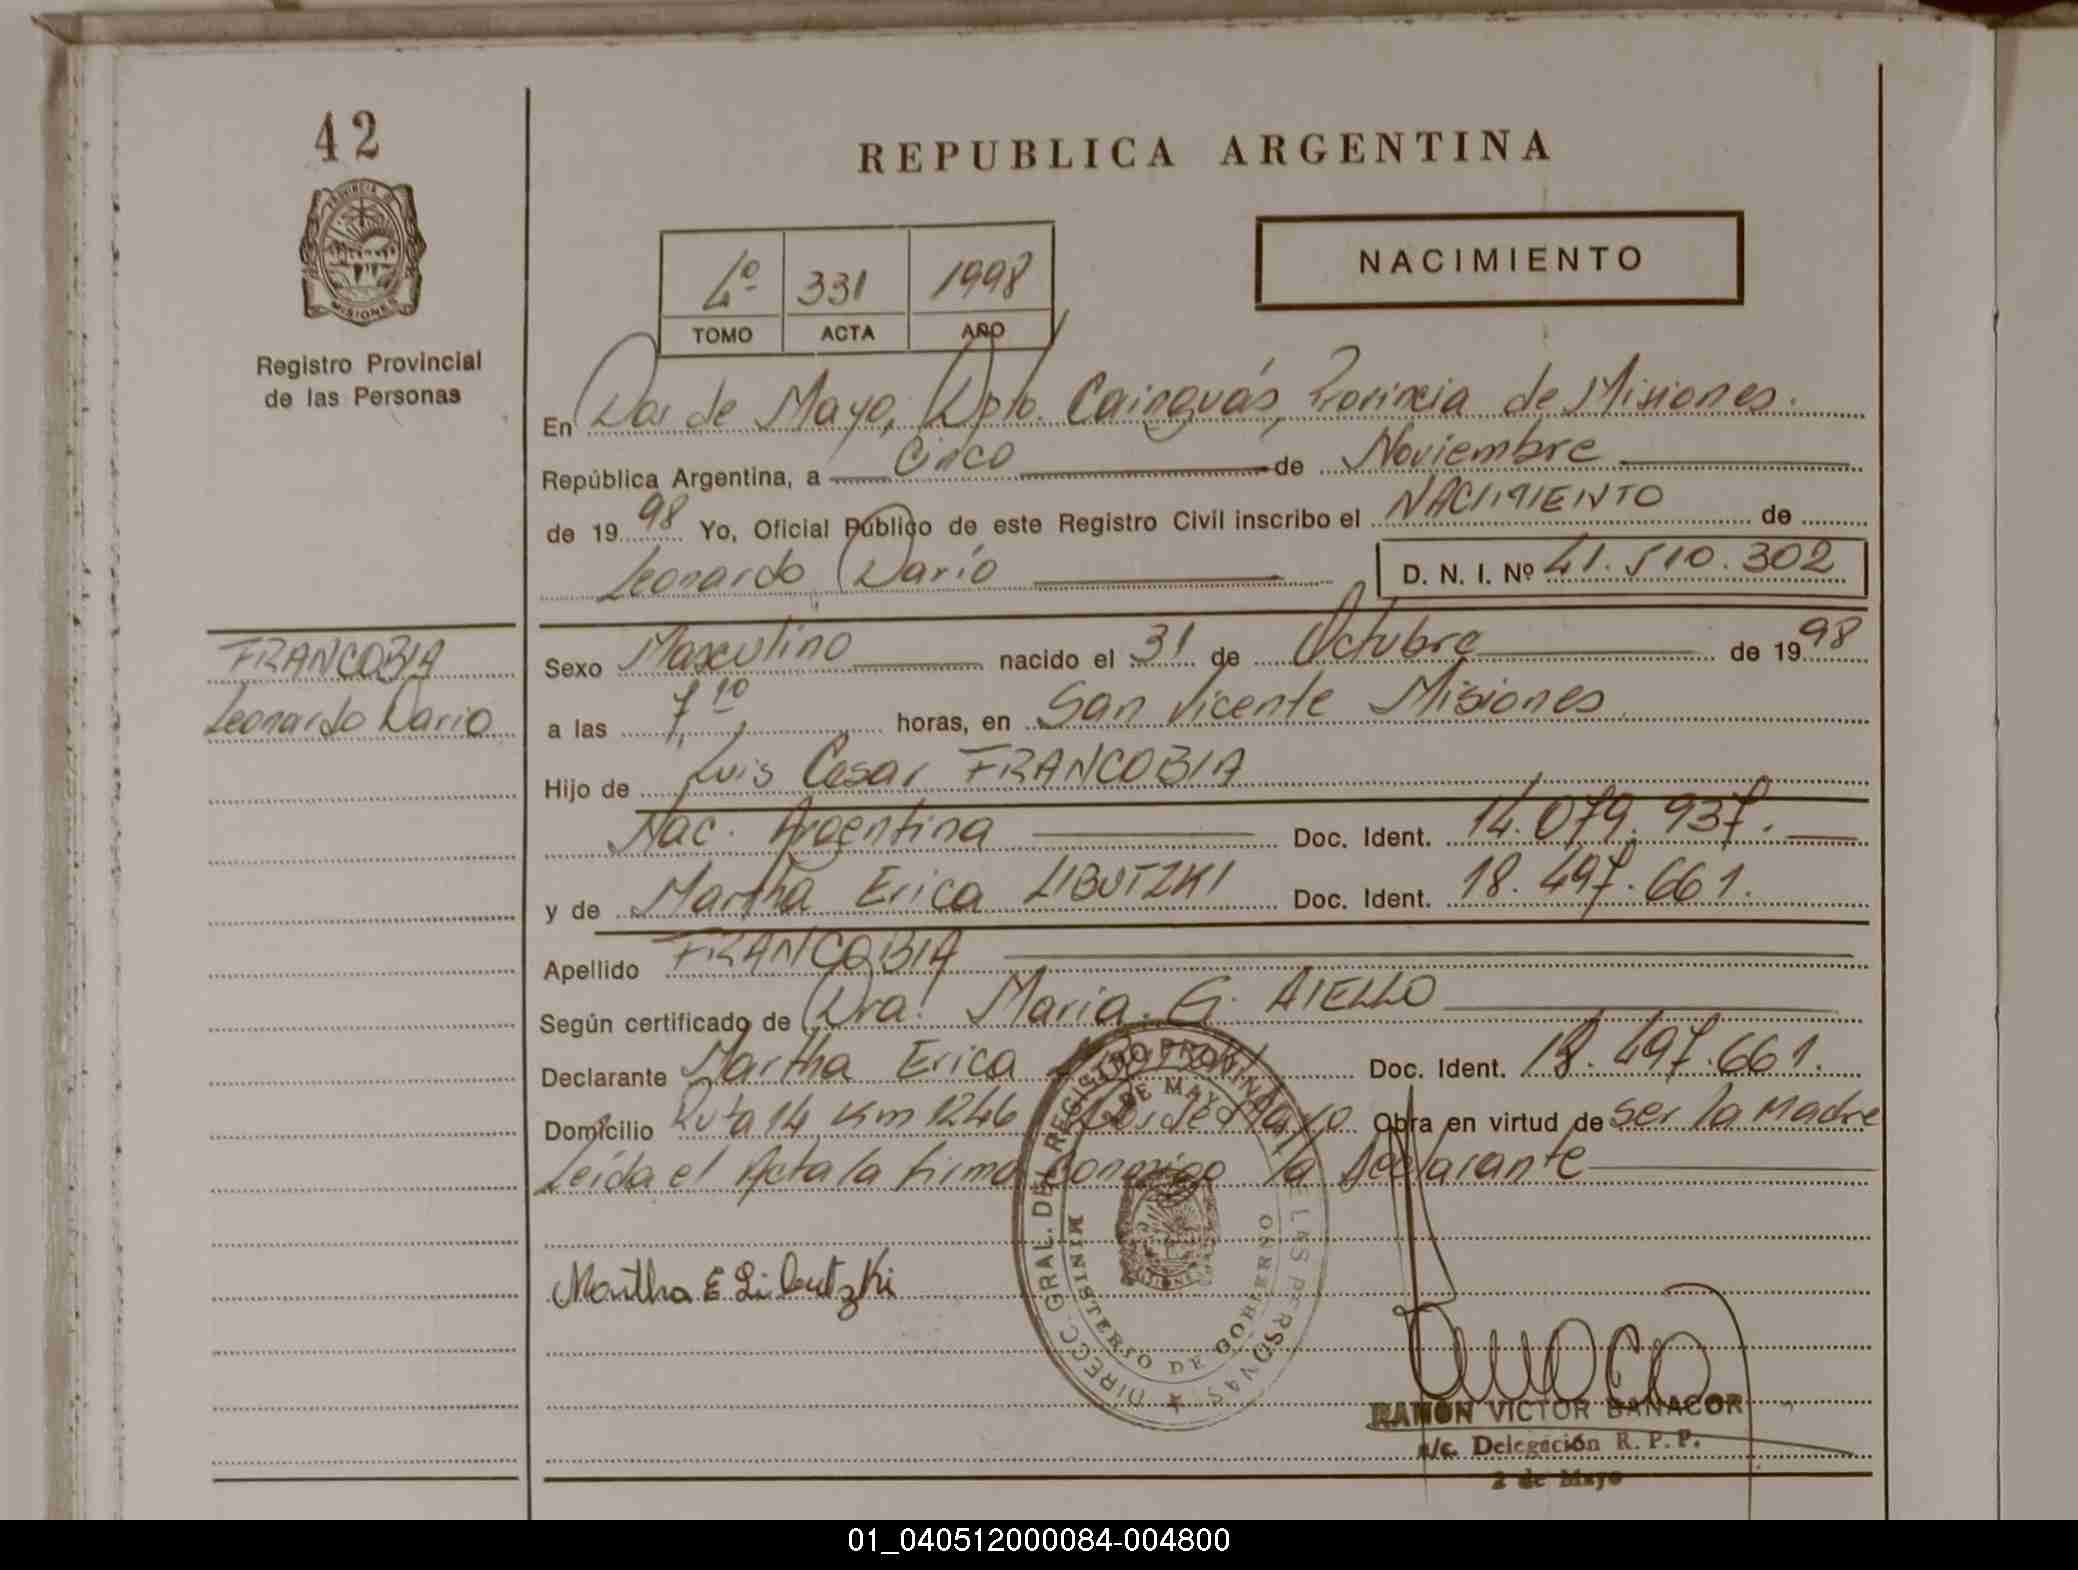 42
PROVINCIA DE
MISIONES
Registro Provincial
de las Personas
FRANCOBIA
Leonardo Dario
REPUBLICA ARGENTINA
4º 331 1998
TOMO ACTA AÑO
NACIMIENTO
En Dos de Mayo, Dpto. Cainguás, Provincia de Misiones.
República Argentina, a Cinco de Noviembre
de 19 98 Yo, Oficial Público de este Registro Civil inscribo el NACIMIENTO de
Leonardo Darío D. N. I. Nº 41.510.302
Sexo Masculino nacido el 31 de Octubre de 19 98
a las 7,10 horas, en San Vicente Misiones
Hijo de Luis Cesar FRANCOBIA
Nac. Argentina Doc. Ident. 14.079.937.
y de Martha Erica LIBUTZKI Doc. Ident. 18.497.661.
Apellido FRANCOBIA
Según certificado de Dra. Maria. G. AIELLO
Declarante Martha Erica LIBUTZKI Doc. Ident. 18.497.661.
Domicilio Ruta 14 Km 1246 Dos de Mayo Obra en virtud de ser la Madre
Leida el Acta la firma conmigo la Declarante
DIRECC. GRAL. DEL REGISTRO PROVINCIAL DE LAS PERSONAS
2 DE MAYO
MINISTERIO DE GOBIERNO
MISIONES
Martha E Libutzki
RAMÓN VICTOR BANACOR
a/c. Delegación R. P. P.
2 de Mayo
01_040512000084-004800